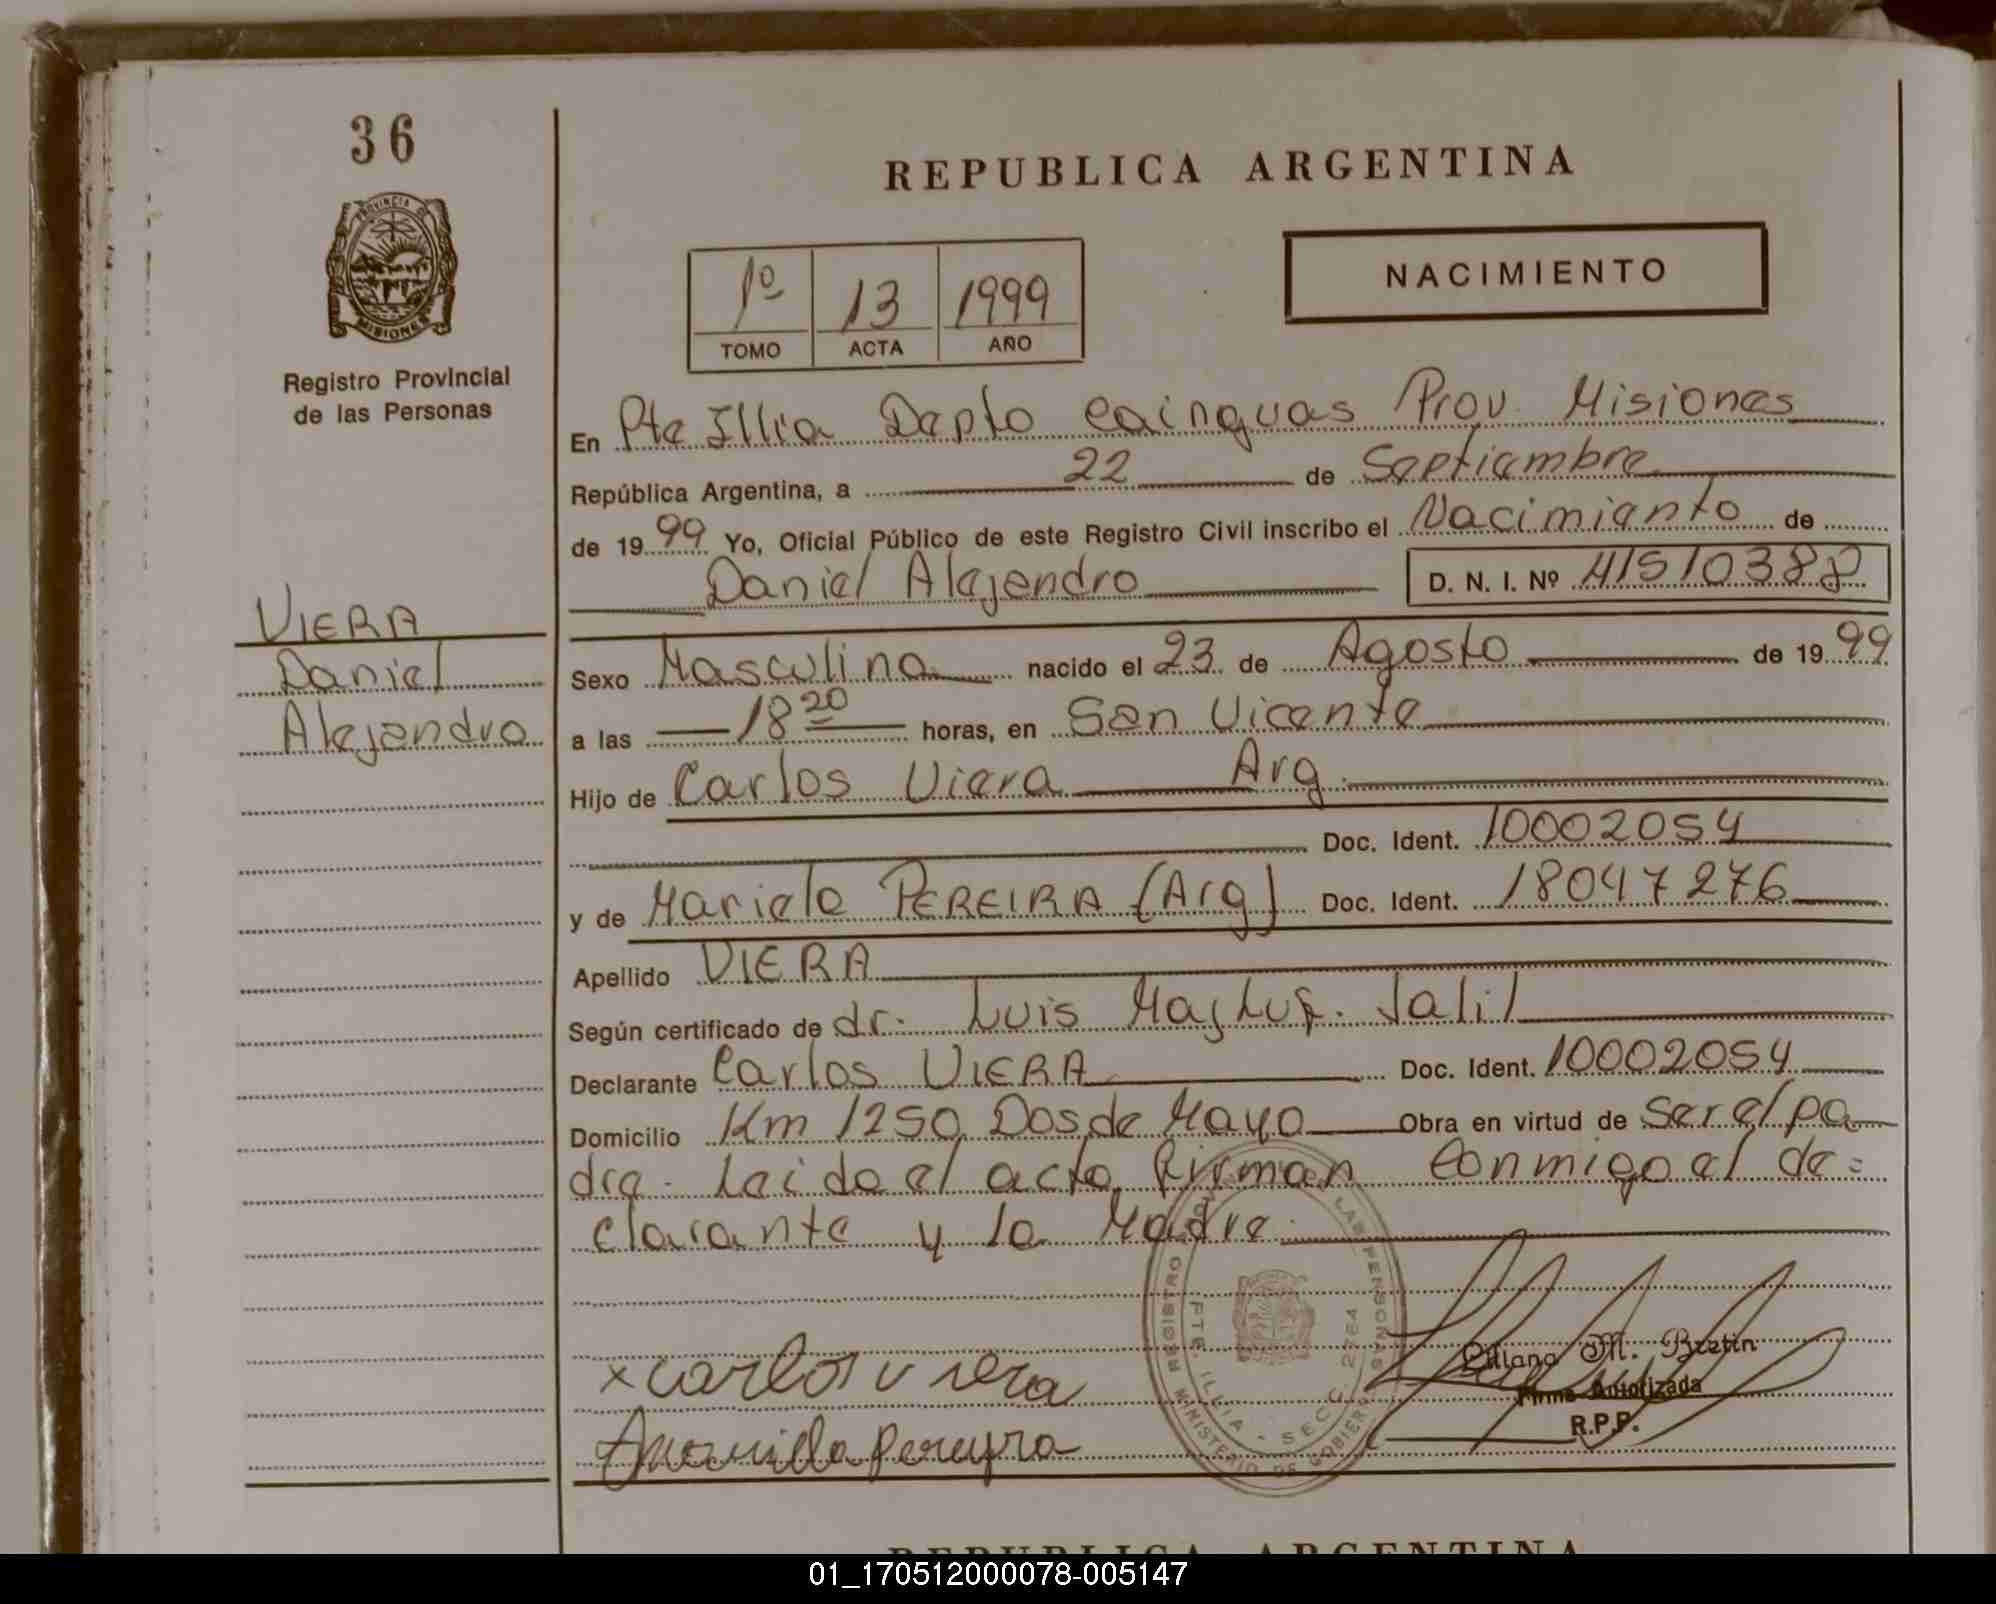 36
PROVINCIA DE
MISIONES
Registro Provincial
de las Personas
VIERA
Daniel
Alejandro
REPUBLICA ARGENTINA
1º 13 1999
TOMO ACTA AÑO
NACIMIENTO
En Pte Illia Depto Cainguas Prov. Misiones
República Argentina, a 22 de Septiembre
de 1999 Yo, Oficial Público de este Registro Civil inscribo el Nacimiento de
Daniel Alejandro D. N. I. Nº 41510388
Sexo Masculino nacido el 23 de Agosto de 1999
a las 18 20 horas, en San Vicente
Hijo de Carlos Viera Arg.
Doc. Ident. 10002054
y de Mariela PEREIRA (Arg) Doc. Ident. 18047276
Apellido VIERA
Según certificado de dr. Luis Jalil
Declarante Carlos VIERA Doc. Ident. 10002054
Domicilio Km 1250 Dos de Mayo Obra en virtud de ser el pa
dre. Leida el acta, Firman Conmigo el de=
clarante y la Madre.
REGISTRO DE LAS PERSONAS
MINISTERIO DE GOBIERNO
PTE. ILLIA - SECC. 2764
x carlos viera
pereyra
Liliana M. Bretin
Firma Autorizada
R.P.P.
REPUBLICA ARGENTINA
01_170512000078-005147